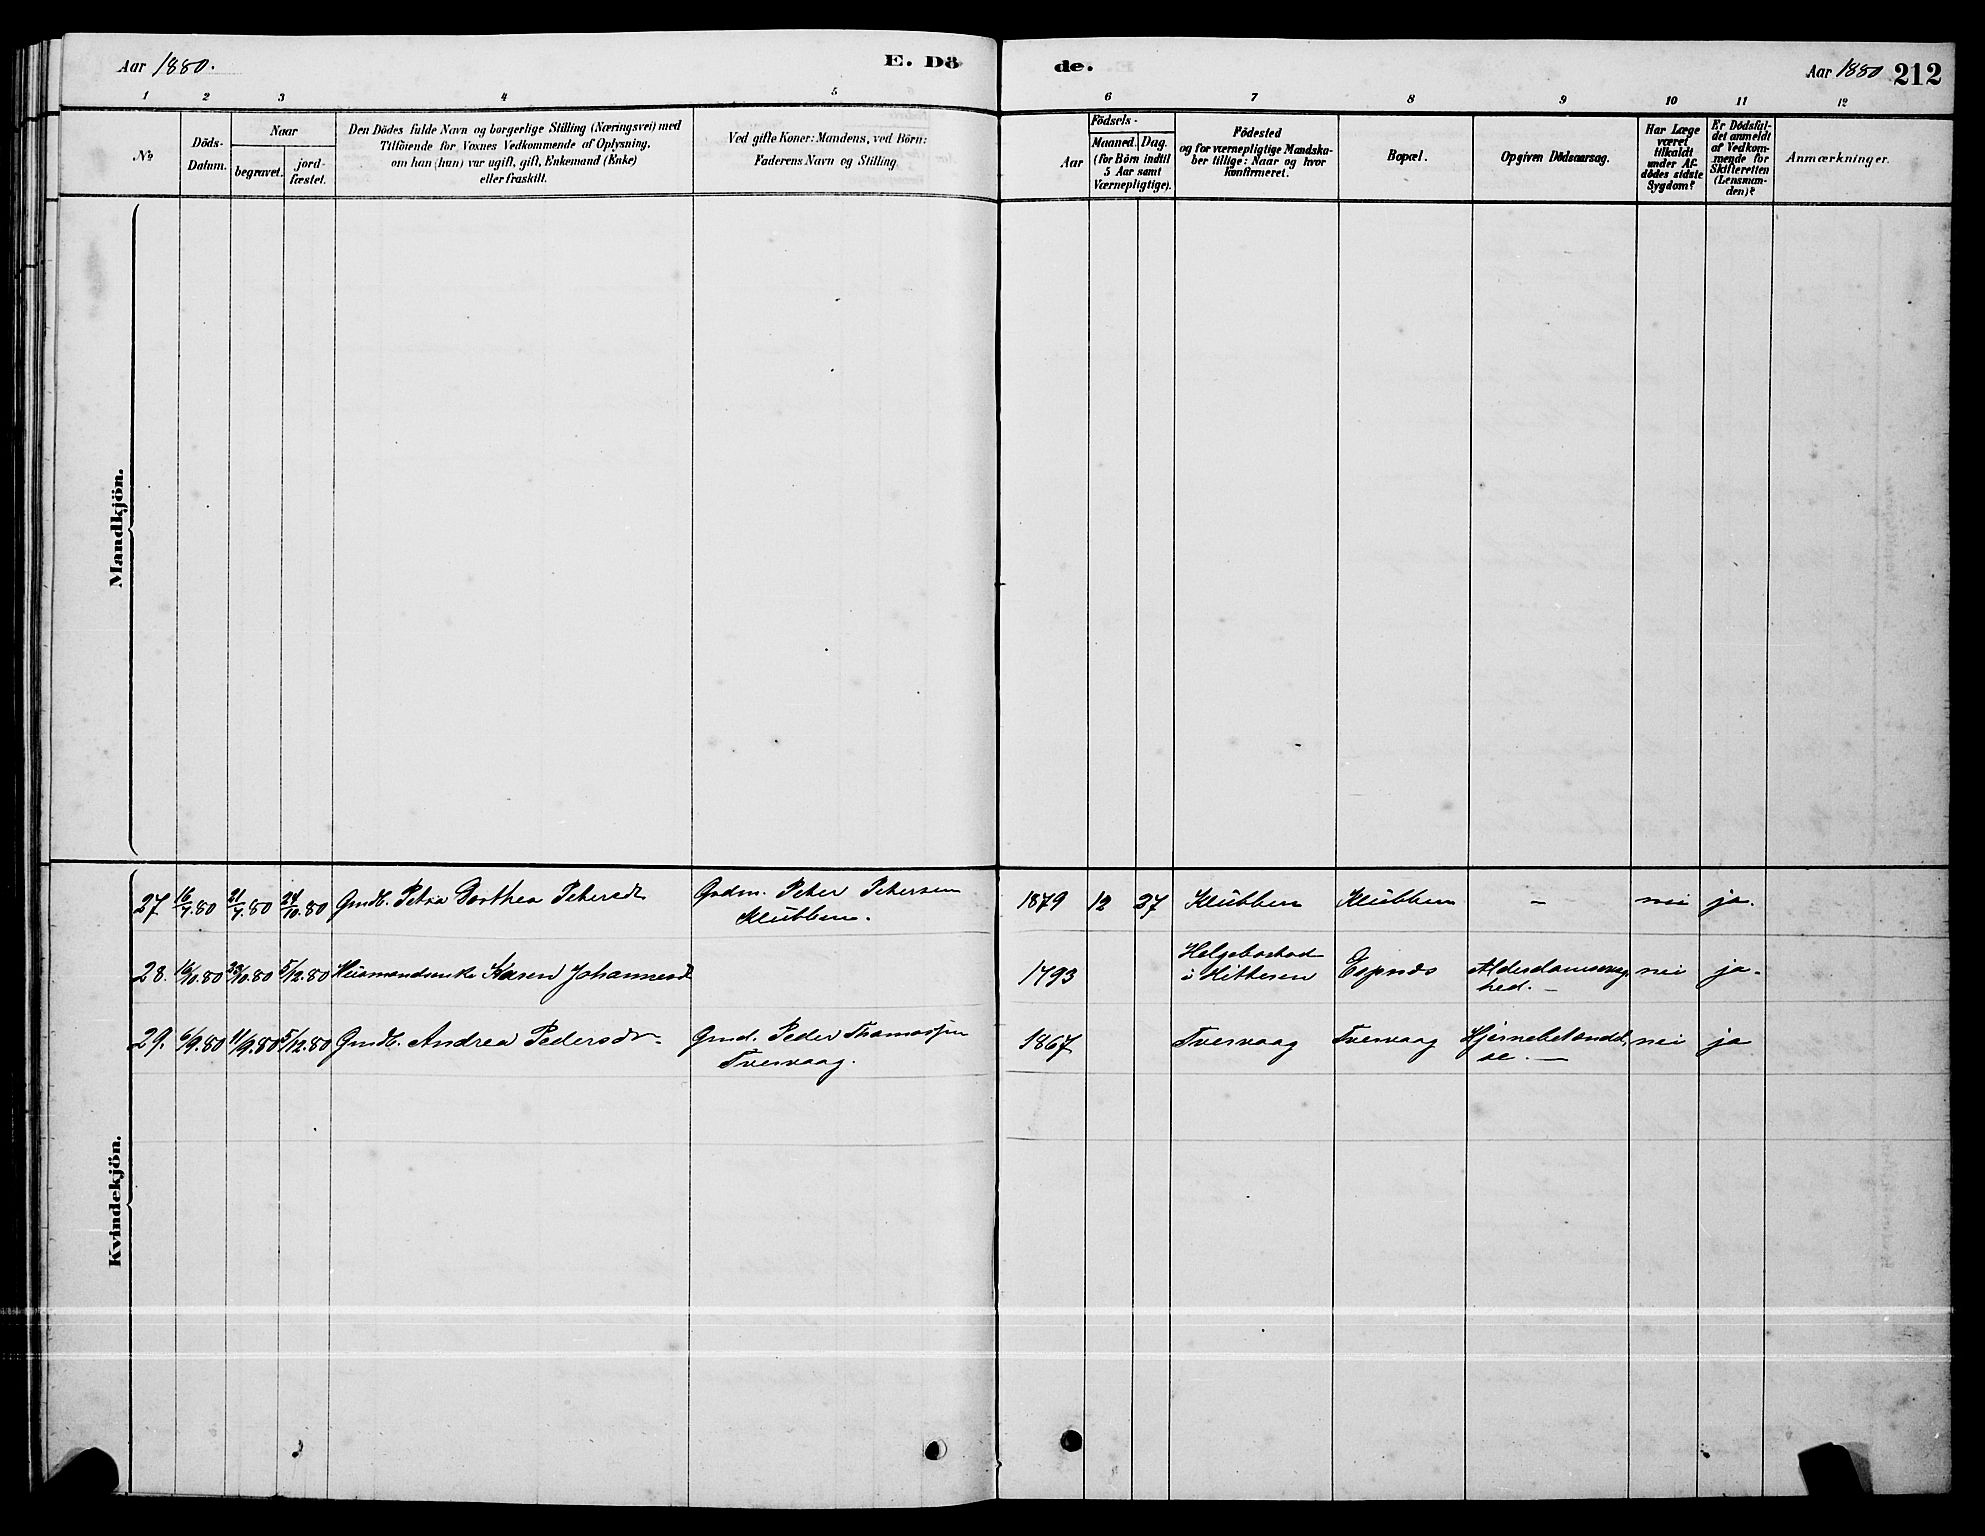 Aar 1880.
E. Dö
de.
Aar 1880 212
1 2 3 4 5 6 7 8 9 10 11 12
No
Döds-
Datum.
Naar
begravet.
jord-
fæstet.
Den Dödes fulde Navn og borgerlige Stilling (Næringsvei) med
Tilföiende for Voxnes Vedkommende af Oplysning,
om han (hun) var ugift, gift, Enkemand (Enke)
eller fraskilt.
Ved gifte Koner: Mandens, ved Börn:
Faderens Navn og Stilling.
Födsels-
Aar
Maaned.
Dag.
(for Börn indtil
5 Aar samt
Værnepligtige).
Födested
og for værnepligtige Mandska-
ber tillige: Naar og hvor
konfirmeret.
Bopæl.
Opgiven Dödsaarsag.
Har Læge
været
tilkaldt
under Af-
dödes sidste
Sygdom?
Er Dödsfal-
det anmeldt
af Vedkom-
mende for
Skifteretten
(Lensman-
den)?
Anmærkninger.
Mandkjön.
Kvindekjön.
27 16/7.80 21/7.80 24/10.80 Gmdb. Petra Dorthea Petersdr Gadm. Peter Petersen 1879 12 27 Klubben Klubben — nei ja.
Klubben.
28. 16/10.80 23/10.80 5/12.80 Husmandsenke Karen Johannesd 1793 Helgebostad Espnes Alderdomssvag- nei ja.
i Hitteren hed. —
29. 6/9.80 11/9.80 5/12.80 Gmdb. Andrea Pedersdr. Gmd. Peder Thomassen 1867 Tversvaag Tversvaag Hjernebetændel- nei ja
Tversvaag. se. —